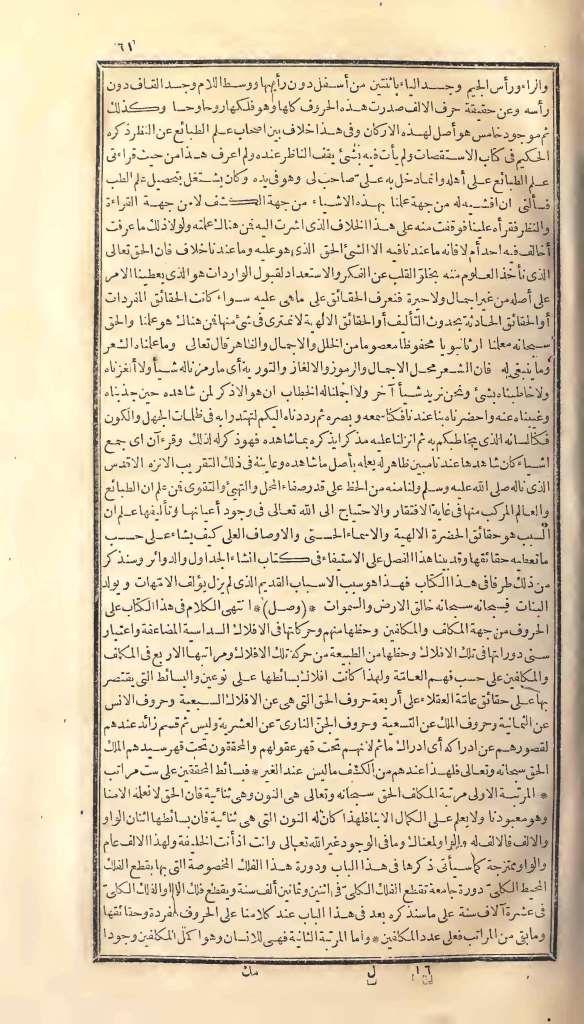 ٦١
والزاء ورأس الجيم وجسد الياء باثنتين من أسفل دون رأسها ووسط اللام وجسد القاف دون
رأسه وعن حقيقة حرف الالف صدرت هذه الحروف كلها وهو فلكها روحا وحسا وكذلك
ثم موجود خامس هو أصل لهذه الاركان وفي هذا خلاف بين اصحاب علم الطبائع عن النظر ذكره
الحكيم فى كتاب الاستقصات ولم يأت فيه بشئ يقف الناظر عنده ولم اعرف هذا من حيث قراءتى
علم الطبائع على أهله وانما دخل به على صاحب لى وهو فى يده وكان يشتغل بتحصيل علم الطب
فسألنى ان افشيه له من جهة علمنا بهذه الاشياء من جهة الكشف لا من جهة القراءة
والنظر فقرأه علينا فوقفت منه على هذا الخلاف الذى اشرت اليه فمن هناك علمته ولولا ذلك ما عرفت
أخالف فيه احد أم لا فانه ما عندنا فيه الا الشئ الحق الذى هو عليه وما عندنا خلاف فان الحق تعالى
الذى نأخذ العلوم منه بخلق القلب عن الفكر والاستعداد لقبول الواردات هو الذى يعطينا الامر
على أصله من غير اجمال ولا حيرة فنعرف الحقائق على ما هى عليه سواء كانت الحقائق المفردات
أو الحقائق الحادثة بحدوث التأليف أو الحقائق الالهية لا نمترى فى شئ منها فمن هناك هو علمنا والحق
سبحانه معلمنا ارثا نبويا محفوظا معصوما من الخلل والاجمال والظاهر قال تعالى وما علمناه الشعر
وما ينبغى له فان الشعر محل الاجمال والرموز والالغاز والتورية أى ما رمزنا له شيأ ولا ألغزناه
ولا خاطبناه بشئ ونحن نريد شيأ آخر ولا اجملنا له الخطاب ان هو الا ذكر لمن شاهده حين جذبناه
وغيبناه عنه واحضرناه بنا عندنا فكنا سمعه وبصره ثم رددناه اليكم لتهتدوا به فى ظلمات الجهل والكون
فكنا لسانه الذى يخاطبكم به ثم انزلنا عليه مذكرا يذكره بما شاهده فهو ذكر له لذلك وقرءآن اى جمع
اشياء كان شاهدها عندنا مبين ظاهر له يعلمه بأصل ما شاهده وعاينه فى ذلك التقريب الانزه الاقدس
الذى ناله صلى الله عليه وسلم ولنا منه من الحظ على قدر صفاء المحل والتهيئ والتقوى فمن علم ان الطبائع
والعالم المركب منها فى غاية الافتقار والاحتياج الى الله تعالى فى وجود أعيانها وتأليفها علم ان
السبب هو حقائق الحضرة الالهية والاسماء الحسنى والاوصاف العلى كيف يشاء على حسب
ما تعطيه حقائقها وقد بينا هذا الفصل على الاستيفاء فى كتاب انشاء الجداول والدوائر وسنذكر
من ذلك طرفا فى هذا الكتاب فهذا هو سبب الاسباب القديم الذى لم يزل يؤلف الامهات ويولد
البنات فسبحانه سبحانه خالق الارض والسموات *(وصل)* انتهى الكلام فى هذا الكتاب على
الحروف من جهة المكلف والمكلفين وحظها منهم وحركاتها فى الافلاك السداسية المضاعفة واعتبار
سنى دوراتها فى تلك الافلاك وحظها من الطبيعة من حركة تلك الافلاك ومراتبها الاربع فى المكلف
والمكلفين على حسب فهم العامة ولهذا كانت افلاك بسائطها على نوعين والبسائط التى يقتصر
بها على حقائق عامة العقلاء على أربعة حروف الحق التى هى عن الافلاك السبعية وحروف الانس
عن الثمانية وحروف الملك عن التسعية وحروف الجن النارى عن العشرية وليس ثم قسم زائد عندهم
لقصورهم عن ادراكه أى ادراك ما ثم لانهم تحت قهر عقولهم والمحققون تحت قهر سيدهم الملك
الحق سبحانه وتعالى فلهذا عندهم من الكشف ما ليس عند الغير * فبسائط المحققين على ست مراتب
* المرتبة الاولى مرتبة المكلف الحق سبحانه وتعالى هى النون وهى ثنائية فان الحق لا نعلمه الا منا
وهو معبودنا ولا يعلم على الكمال الا بنا فلهذا كان له النون التى هى ثنائية فان بسائطها اثنان الواو
والالف فالالف له والواو لمعناك وما فى الوجود غير الله تعالى وانت اذ أنت الخليفة ولهذا الالف عام
والواو ممتزجة كما سيأتى ذكرها فى هذا الباب ودورة هذا الفلك المخصوصة التى بها يقطع الفلك
المحيط الكلى دورة جامعة تقطع الفلك الكلى فى اثنتين وثمانين ألف سنة ويقطع فلك الواو الفلك الكلى
فى عشرة آلاف سنة على ما سنذكره بعد فى هذا الباب عند كلامنا على الحروف المفردة وحقائقها
وما بقى من المراتب فعلى عدد المكلفين * واما المرتبة الثانية فهى للانسان وهو اكمل المكلفين وجودا
١٦ ل مك